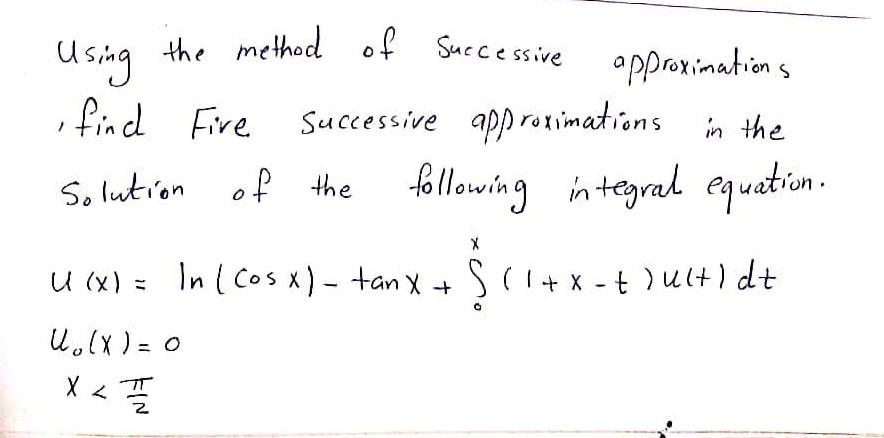 Using the method of Successive approximations
, find Five Successive approximations in the
Solution of the following integral equation.
u(x) = ln(cos x) - tan x + ∫₀ˣ (1 + x - t) u(t) dt
u₀(x) = 0
x < π/2